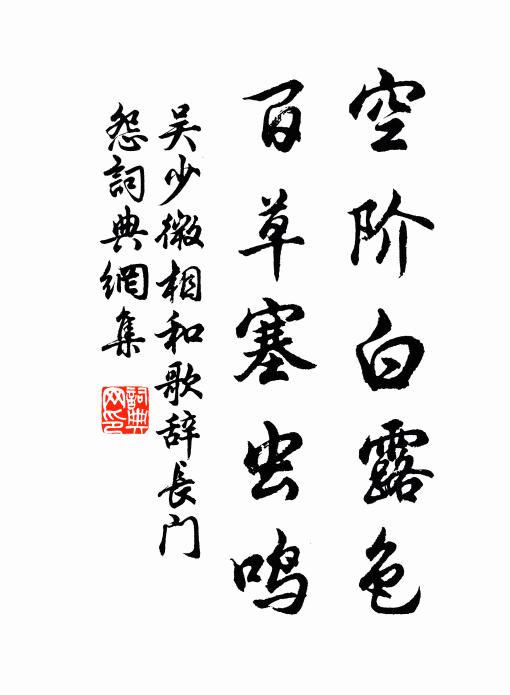 空阶白露色
百草塞虫鸣
吴少微相和歌辞长门
怨詞典網集
詞典网印